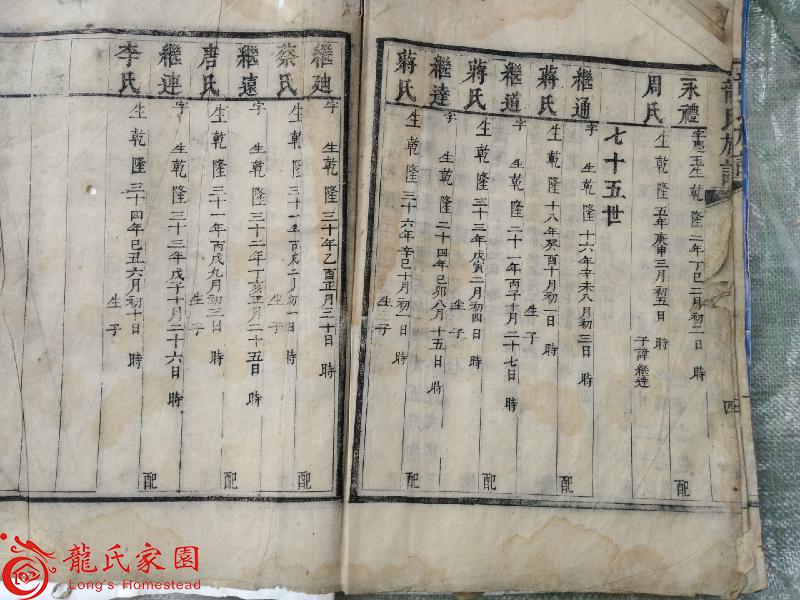 龍氏族譜
四
永禮 字應玉生乾隆二年丁巳二月初二日 時 配
周氏 生乾隆五年庚申三月初五日 時 子諱繼達
七十五世
繼通 字 生乾隆十六年辛未八月初三日 時 配
蔣氏 生乾隆十八年癸酉十月初一日 時 生子
繼道 字 生乾隆二十一年丙子十月二十七日 時 配
蔣氏 生乾隆二十三年戊寅二月初四日 時 生子
繼達 字 生乾隆二十四年己卯八月十五日 時 配
蔣氏 生乾隆二十六年辛巳十月初一日 時 生子
繼迪 字 生乾隆三十年乙酉正月三十日 時 配
蔡氏 生乾隆三十一年丙戌二月初一日 時 生子
繼遠 字 生乾隆三十二年丁亥正月二十五日 時 配
唐氏 生乾隆三十一年丙戌九月初三日 時 生子
繼連 字 生乾隆三十三年戊子十月二十六日 時 配
李氏 生乾隆三十四年己丑六月初十日 時 生子
龍氏家園
Long's Homestead